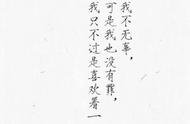 我不无辜，
可是我也没有罪，
我只不过是喜欢着一